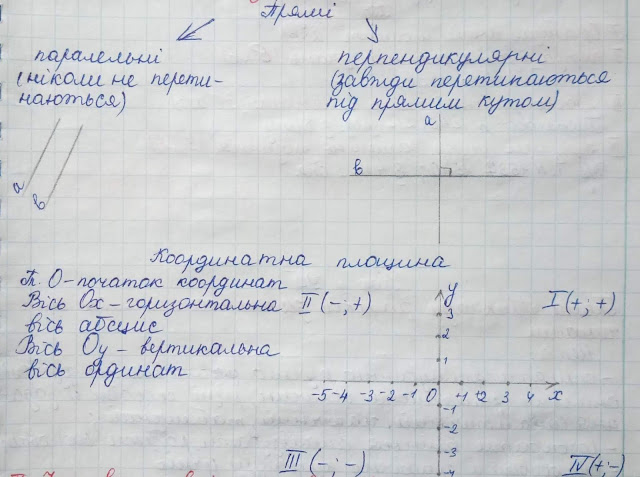 Прямі
паралельні
(ніколи не перети-
наються)
a
b
перпендикулярні
(завжди перетинаються
під прямим кутом)
a
b
Координатна площина
Т. О - початок координат
Вісь Ох - горизонтальна
вісь абсцис
Вісь Оу - вертикальна
вісь ординат
II (-; +)
y
I (+; +)
3
2
1
-5 -4 -3 -2 -1 0 +1 +2 3 4 x
-1
-2
-3
-4
III (-; -)
IV (+; -)